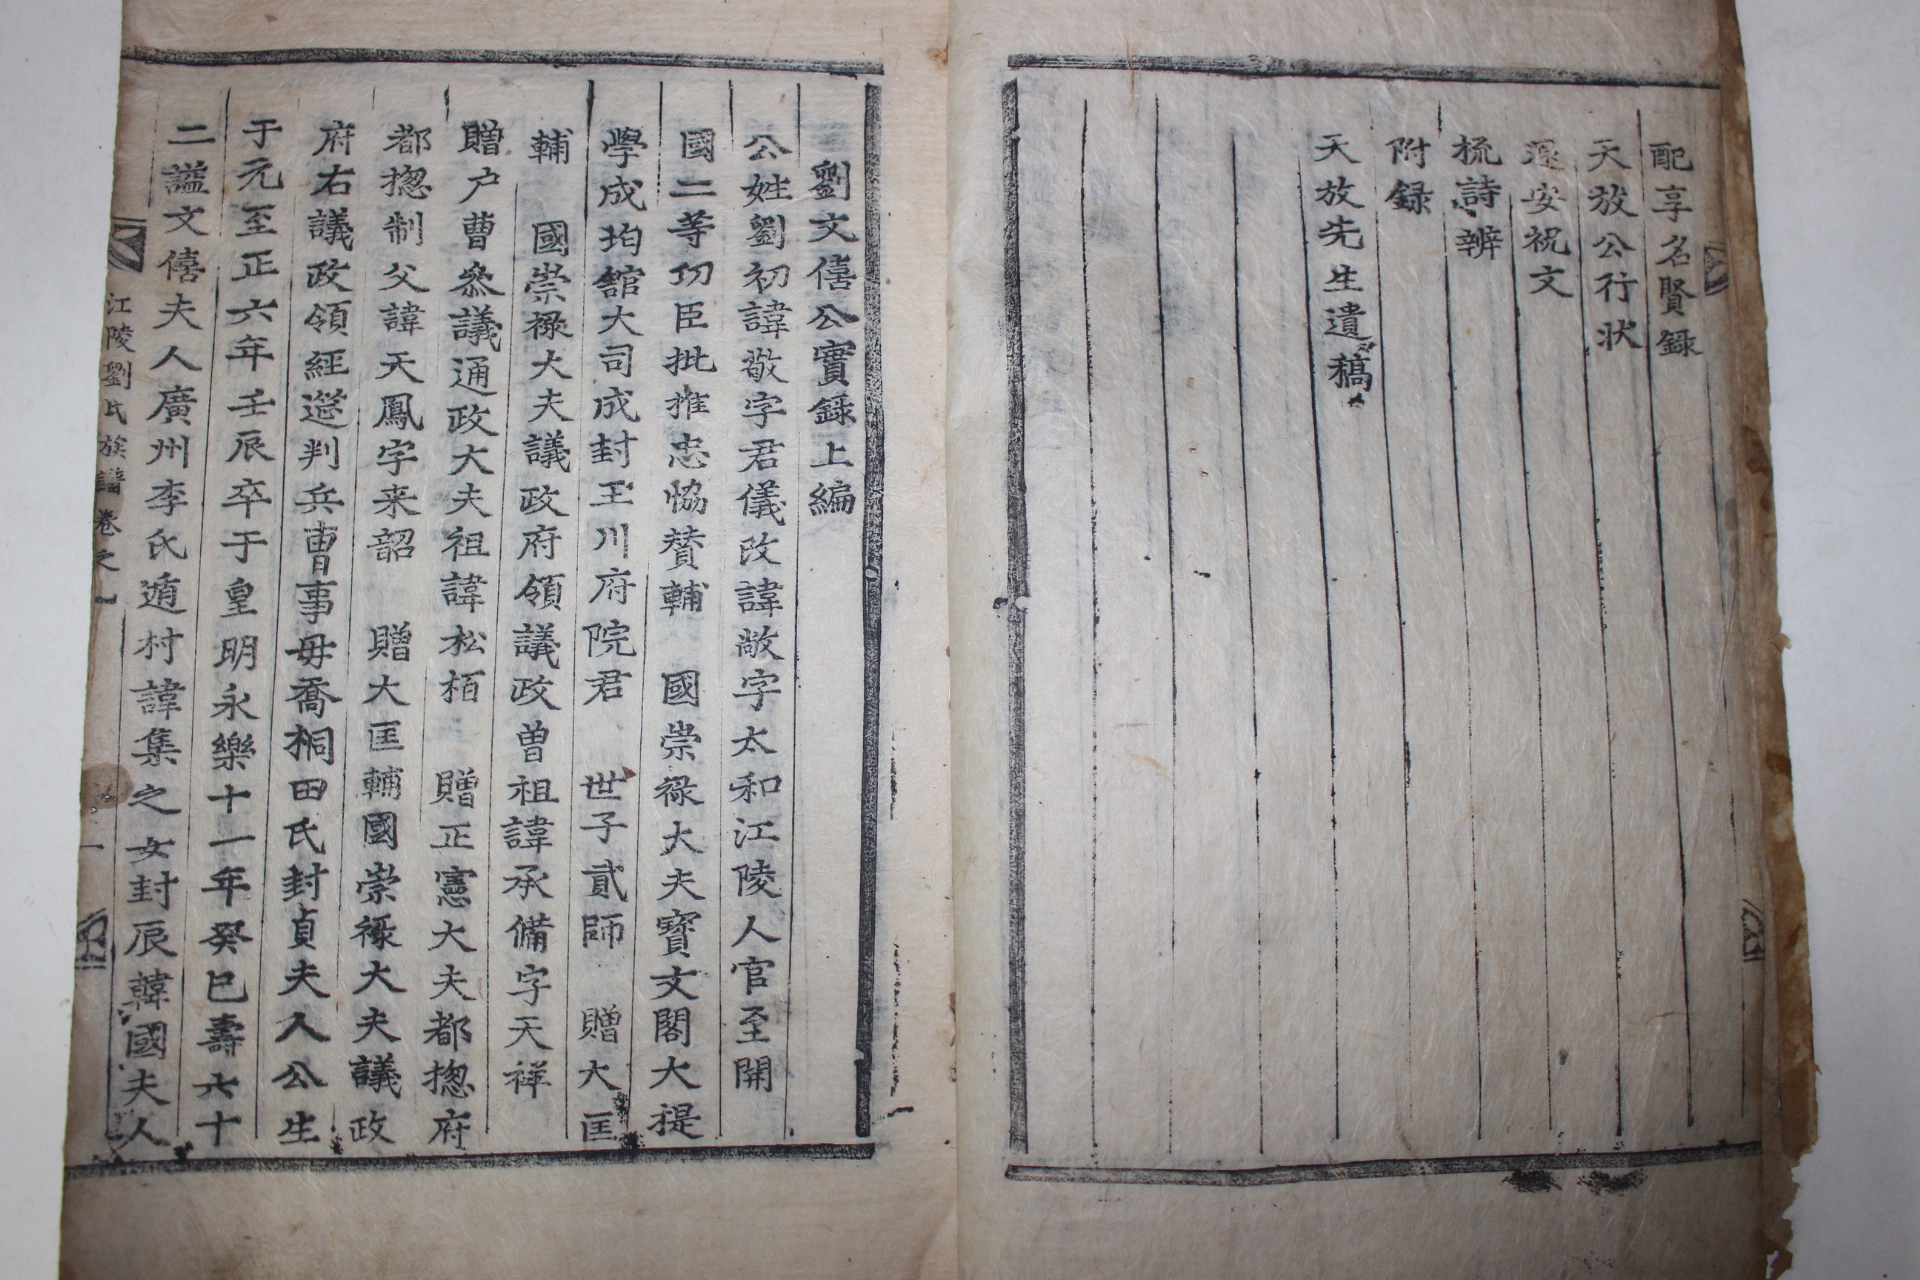 配享名賢録
天放公行狀
還安祝文
梳詩辨
附録
天放先生遺稿
劉文僖公實録上編
公姓劉初諱敬字君儀改諱敞字太和江陵人官至開
國二等功臣批推忠恊賛輔　國崇祿大夫寶文閣大提
學成均館大司成封玉川府院君　世子貳師　贈大匡
輔　國崇祿大夫議政府領議政曽祖諱承備字天祥
贈户曹叅議通政大夫祖諱松栢　贈正憲大夫都摠府
都摠制父諱天鳳字来韶　贈大匡輔國崇祿大夫議政
府右議政領經筵判兵曹事母喬桐田氏封貞夫人公生
于元至正六年壬辰卒于皇明永樂十一年癸巳壽六十
二謚文僖夫人廣州李氏遁村諱集之女封辰韓國夫人
江陵劉氏族譜卷之一
一